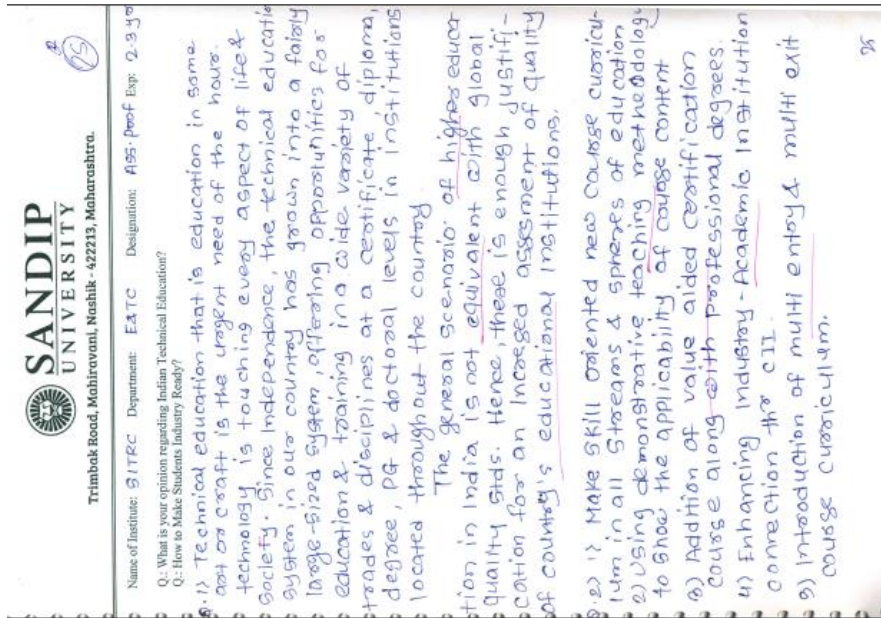 SANDIP
UNIVERSITY
Trimbak Road, Mahiravani, Nashik - 422213, Maharashtra.
25
Name of Institute: SITRC Department: E&TC Designation: Ass. Prof Exp: 2.3 yrs
Q.: What is your opinion regarding Indian Technical Education?
Q.: How to Make Students Industry Ready?
Q.1) Technical education that is education in some
art or craft is the urgent need of the hour.
technology is touching every aspect of life &
Society. Since Independence, the technical educatio
system in our country has grown into a fairly
large-sized system, offering opportunities for
education & training in a wide variety of
trades & disciplines at a certificate, diploma,
degree, PG & doctoral levels in institutions
located throughout the country.
The general scenario of higher educa-
tion in India is not equivalent with global
quality stds. Hence, there is enough justifi-
cation for an Incresed assesment of quality
of country's educational institutions.
Q.2) 1) Make skill oriented new course curricu-
lum in all Streams & spheres of education
2) Using demonstrative teaching methodology
to show the applicability of course content
3) Addition of value aided certification
course along with professional degrees.
4) Enhancing industry-Academic Institution
connection thr' CII.
5) Introduction of multi entry & multi exit
course curriculum.
25